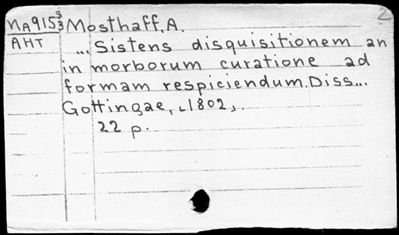 NA9153 Mosthaff, A.
AHT
... Sistens disquisitionem an
in morborum curatione ad
formam respiciendum. Diss...
Gottingae, [1802].
22 p.
2